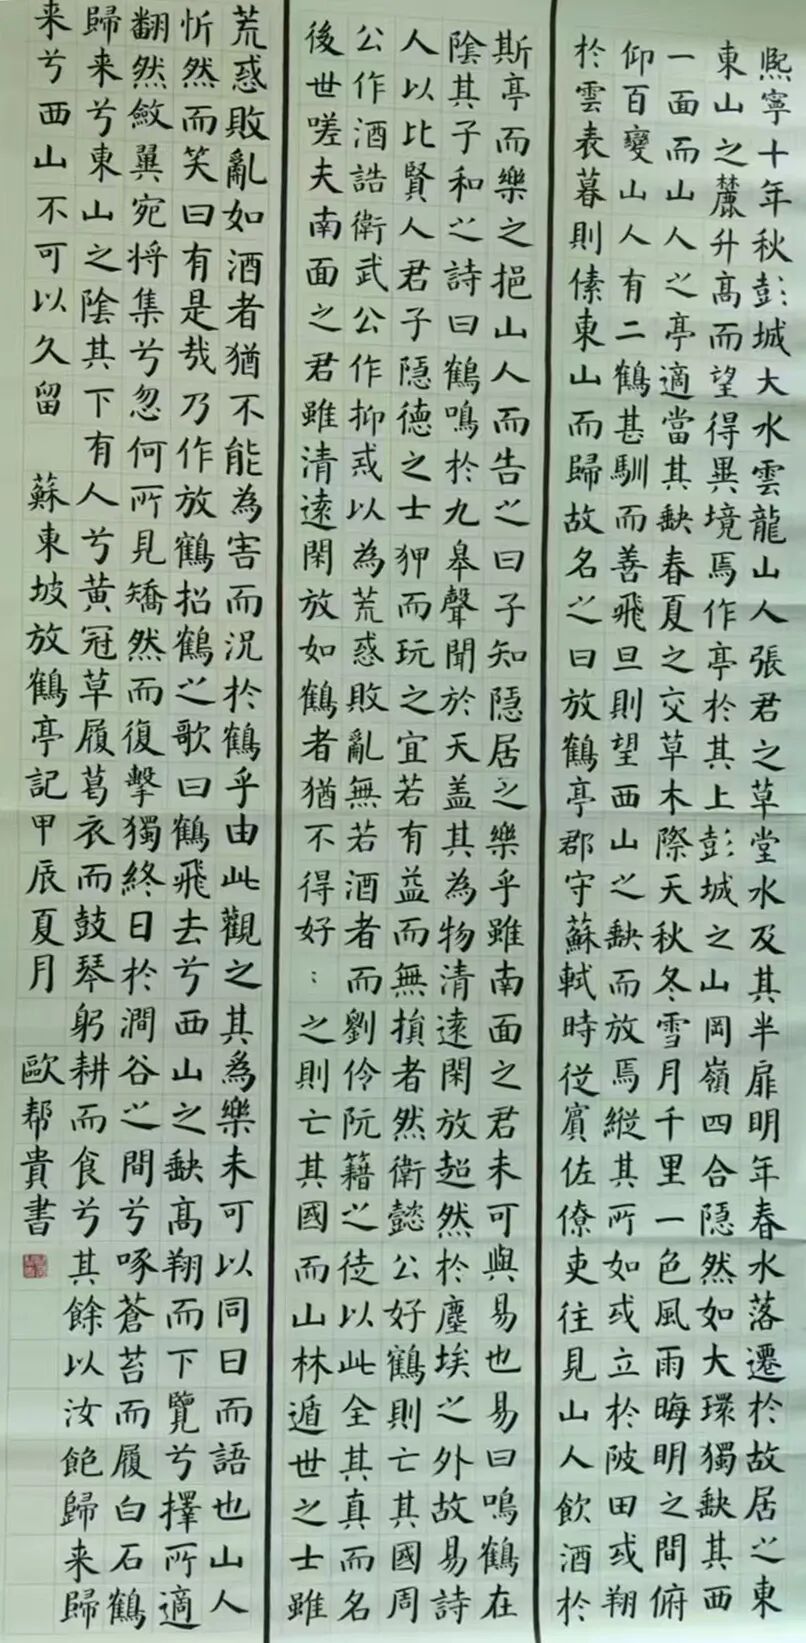 熈寧十年秋彭城大水雲龍山人張君之草堂水及其半扉明年春水落遷於故居之東
東山之麓升髙而望得異境焉作亭於其上彭城之山岡嶺四合隱然如大環獨缺其西
一面而山人之亭適當其缺春夏之交草木際天秋冬雪月千里一色風雨晦明之間俯
仰百變山人有二鶴甚馴而善飛旦則望西山之缺而放焉縱其所如或立於陂田或翔
於雲表暮則傃東山而歸故名之曰放鶴亭郡守蘇軾時従賓佐僚吏往見山人飲酒於
斯亭而樂之挹山人而告之曰子知隱居之樂乎雖南面之君未可與易也易曰鳴鶴在
陰其子和之詩曰鶴鳴於九皋聲聞於天盖其為物清遠閑放超然於塵埃之外故易詩
人以比賢人君子隱德之士狎而玩之宜若有益而無損者然衛懿公好鶴則亡其國周
公作酒誥衛武公作抑戒以為荒惑敗亂無若酒者而劉伶阮籍之徒以此全其真而名
後世嗟夫南面之君雖清遠閑放如鶴者猶不得好：之則亡其國而山林遁世之士雖
荒惑敗亂如酒者猶不能為害而况於鶴乎由此觀之其爲樂未可以同日而語也山人
忻然而笑曰有是哉乃作放鶴招鶴之歌曰鶴飛去兮西山之缺髙翔而下覽兮擇所適
翻然斂翼宛将集兮忽何所見矯然而復擊獨終日於澗谷之間兮啄蒼苔而履白石鶴
歸来兮東山之陰其下有人兮黄冠草履葛衣而鼓琴躬耕而食兮其餘以汝飽歸来歸
来兮西山不可以久留 蘇東坡放鶴亭記甲辰夏月 歐帮貴書